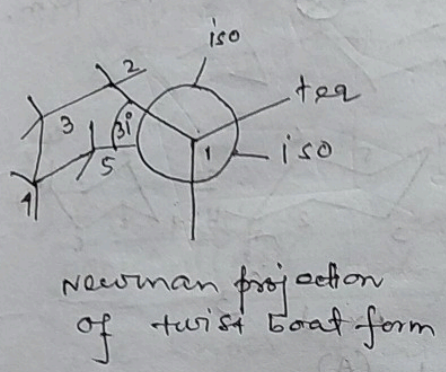 iso
2
teq
3
3i
1
iso
5
4
Newman projection
of twist boat form